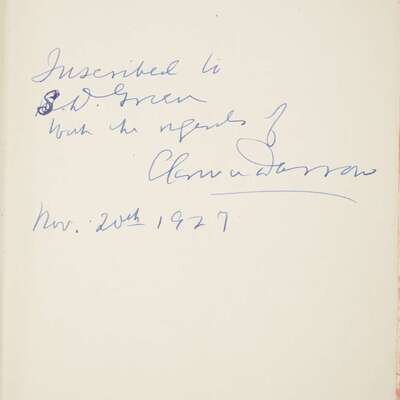 Inscribed to
S.W. Green
With the regards of
Clarence Darrow
Nov. 20th 1927